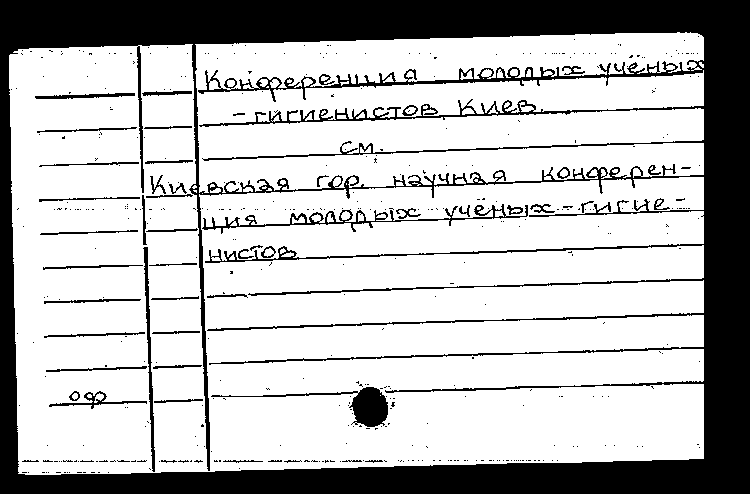 Конференция молодых учёных
-гигиенистов, Киев.
см.
Киевская гор. научная конферен-
ция молодых учёных-гигие-
нистов
оф